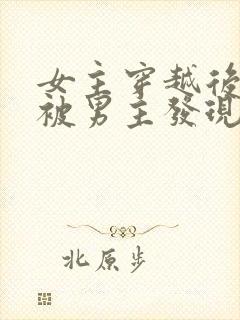 女主穿越後
被男主發現
北原步